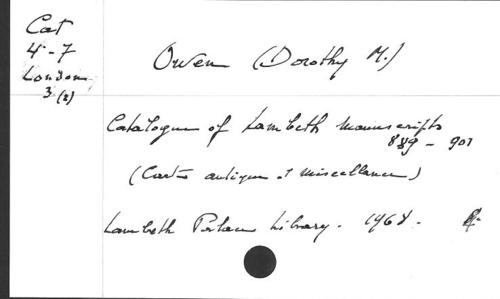 Cat
4-7
London
3 (2)
Owen (Dorothy M.)
Catalogue of Lambeth Manuscripts
889 - 901
(Cartæ antiquæ et miscellaneæ)
Lambeth Palace Library. 1968.